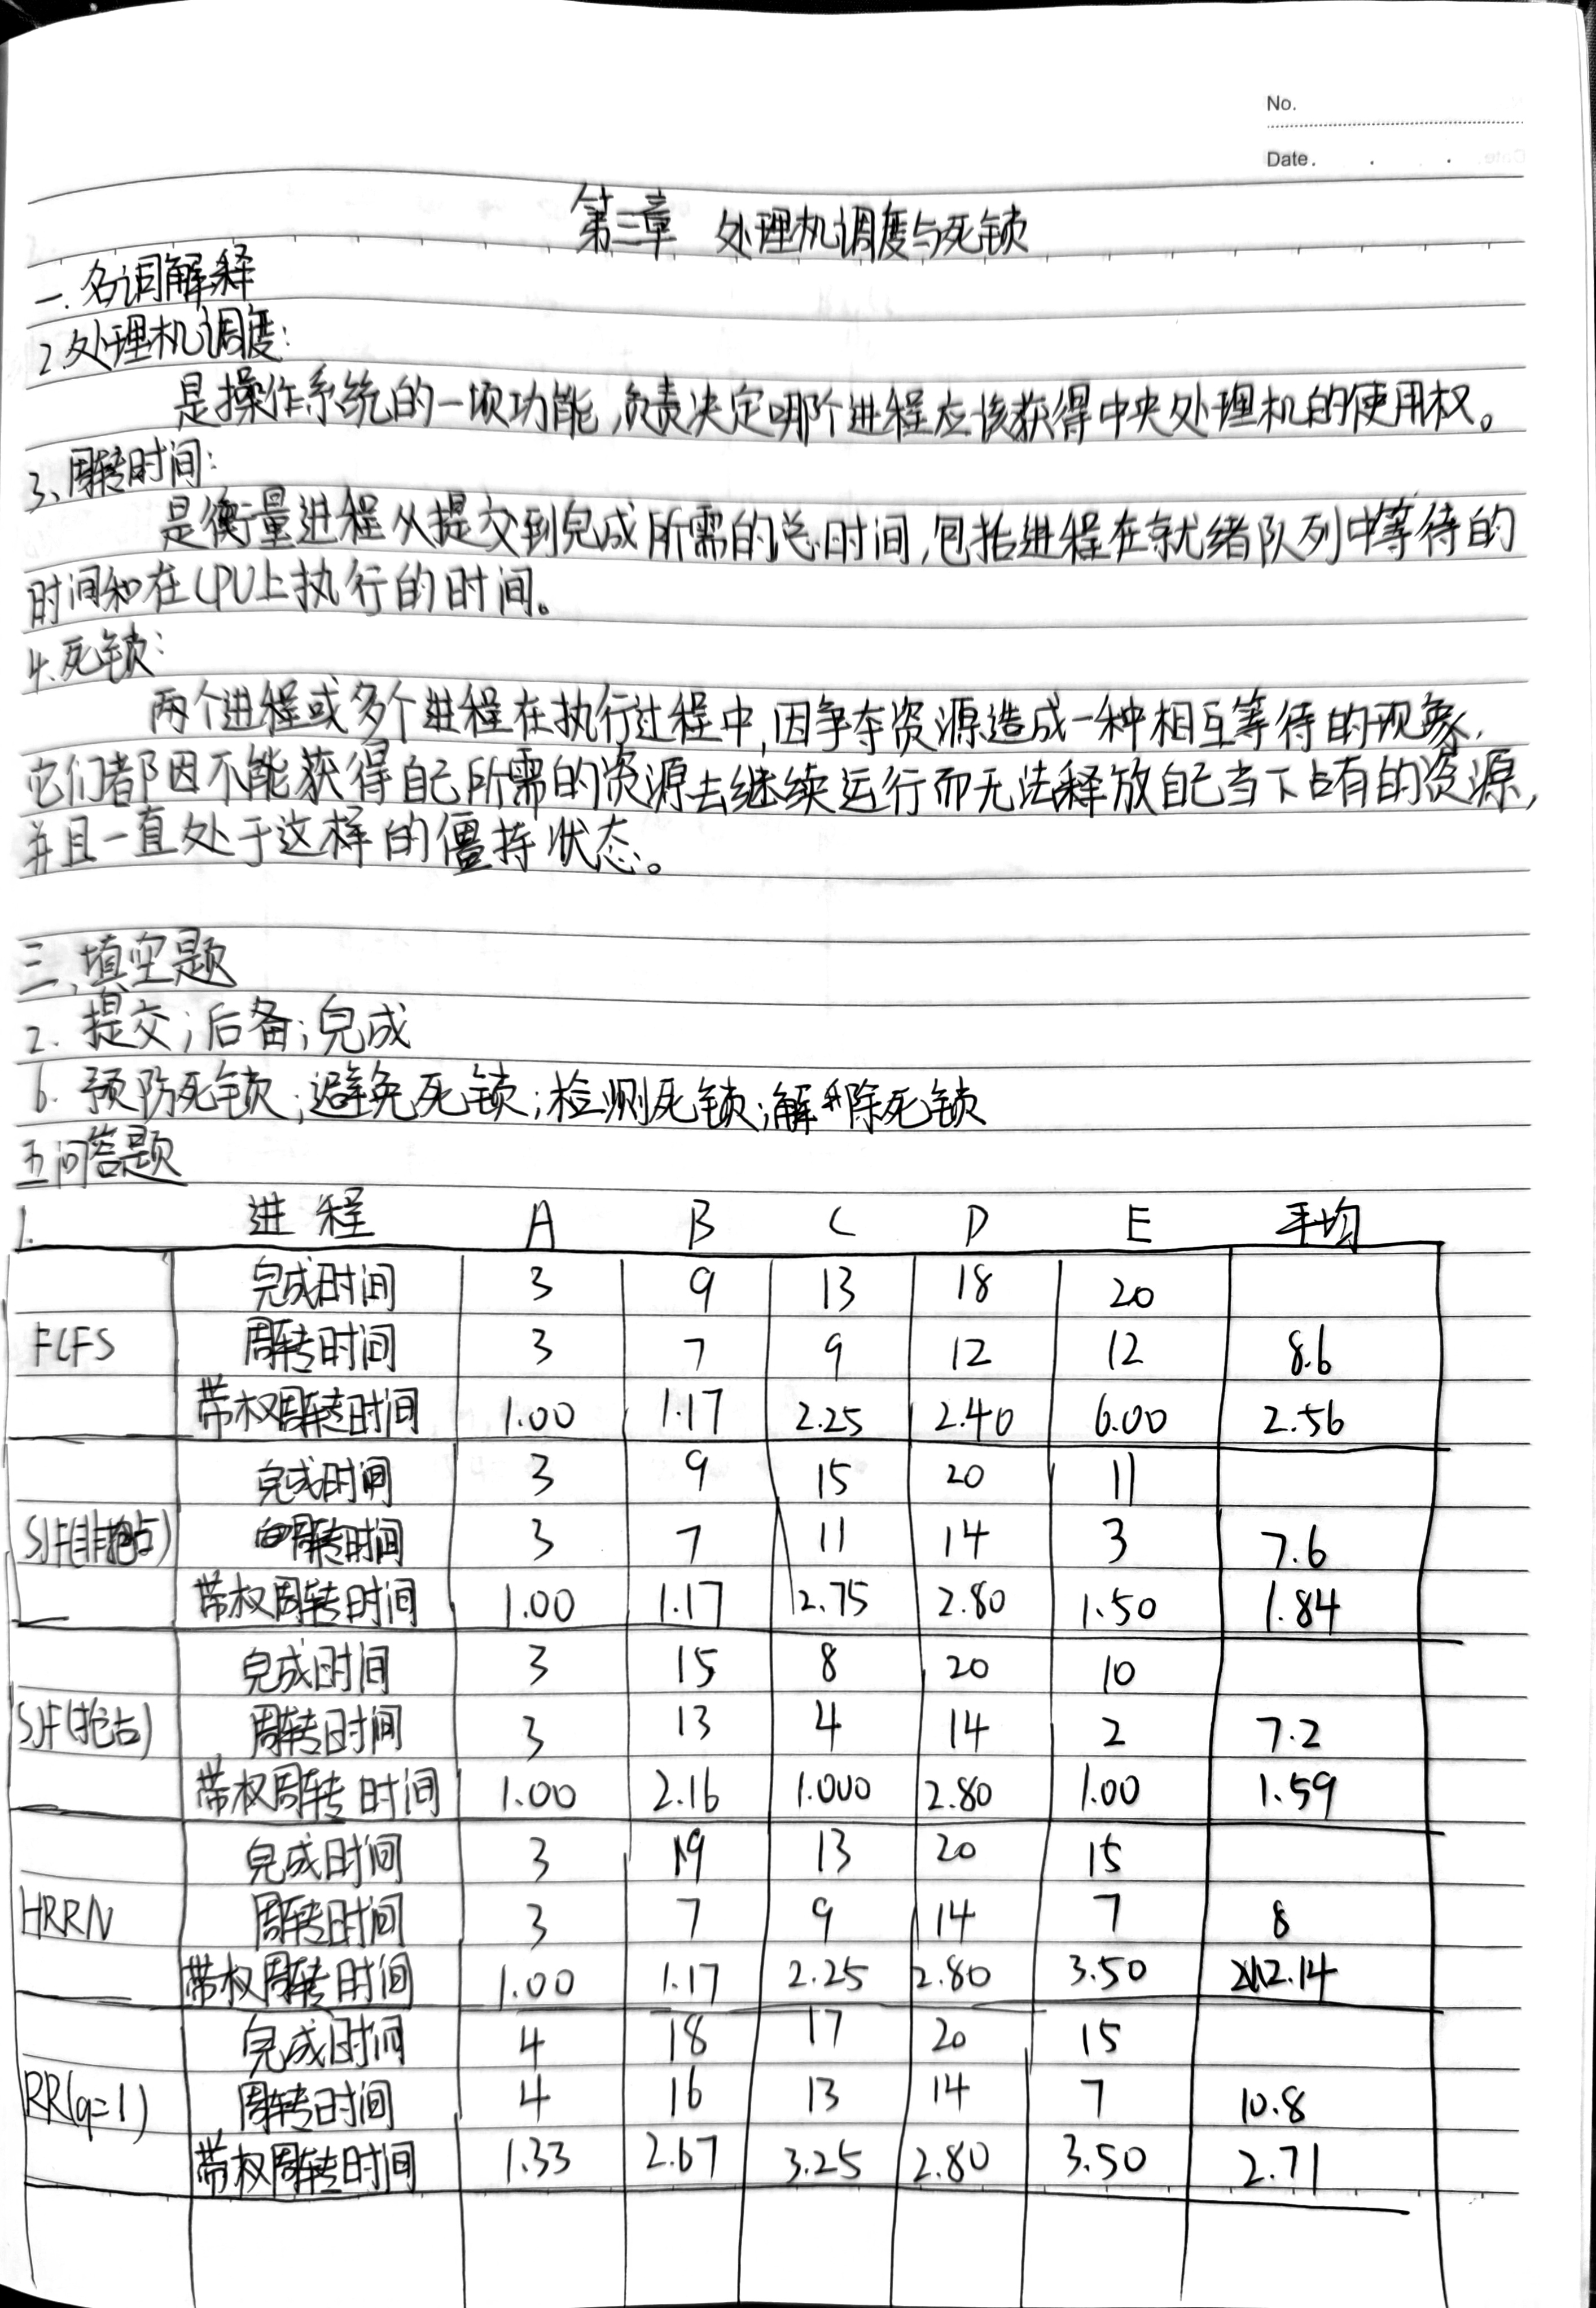 No.
Date.
第三章 处理机调度与死锁
一. 名词解释
2 处理机调度:
是操作系统的一项功能,负责决定哪个进程应该获得中央处理机的使用权。
3、周转时间:
是衡量进程从提交到完成所需的总时间,包括进程在就绪队列中等待的
时间和在CPU上执行的时间。
4.死锁:
两个进程或多个进程在执行过程中,因争夺资源造成一种相互等待的现象,
它们都因不能获得自己所需的资源去继续运行而无法释放自己当下占有的资源,
并且一直处于这样的僵持状态。
三、填空题
2. 提交;后备;完成
6. 预防死锁;避免死锁;检测死锁;解除死锁
五问答题
1. 进程 A B C D E 平均
完成时间 3 9 13 18 20
FCFS 周转时间 3 7 9 12 12 8.6
带权周转时间 1.00 1.17 2.25 2.40 6.00 2.56
完成时间 3 9 15 20 11
SJF(非抢占) 周转时间 3 7 11 14 3 7.6
带权周转时间 1.00 1.17 2.75 2.80 1.50 1.84
完成时间 3 15 8 20 10
SJF(抢占) 周转时间 3 13 4 14 2 7.2
带权周转时间 1.00 2.16 1.000 2.80 1.00 1.59
完成时间 3 9 13 20 15
HRRN 周转时间 3 7 9 14 7 8
带权周转时间 1.00 1.17 2.25 2.80 3.50 2.14
完成时间 4 18 17 20 15
RR(q=1) 周转时间 4 16 13 14 7 10.8
带权周转时间 1.33 2.67 3.25 2.80 3.50 2.71